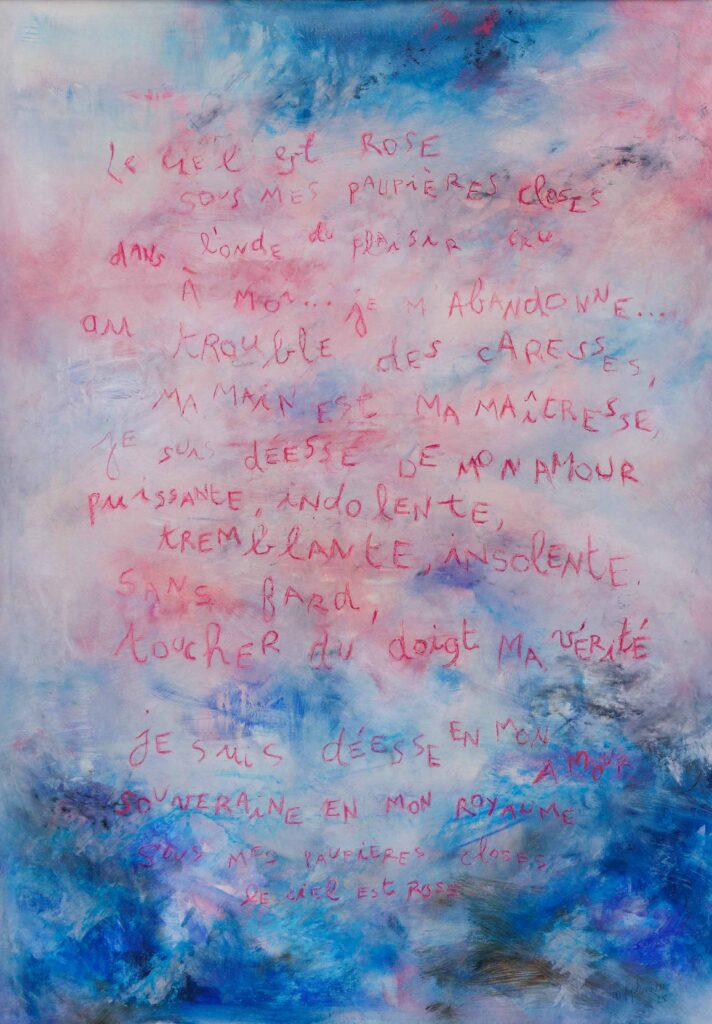 Le ciel est ROSE
SOUS MES PAUPIÈRES closes
dans l'onde du plaisir cru
À moi... je m'abandonne...
au trouble des caresses,
MA MAIN EST MA MAÎTRESSE,
je suis déesse de mon amour
puissante, indolente,
tremblante, insolente.
SANS fard,
toucher du doigt ma vérité
je suis déesse en mon
amour
souveraine en mon royaume
sous mes paupieres closes
le ciel est rose